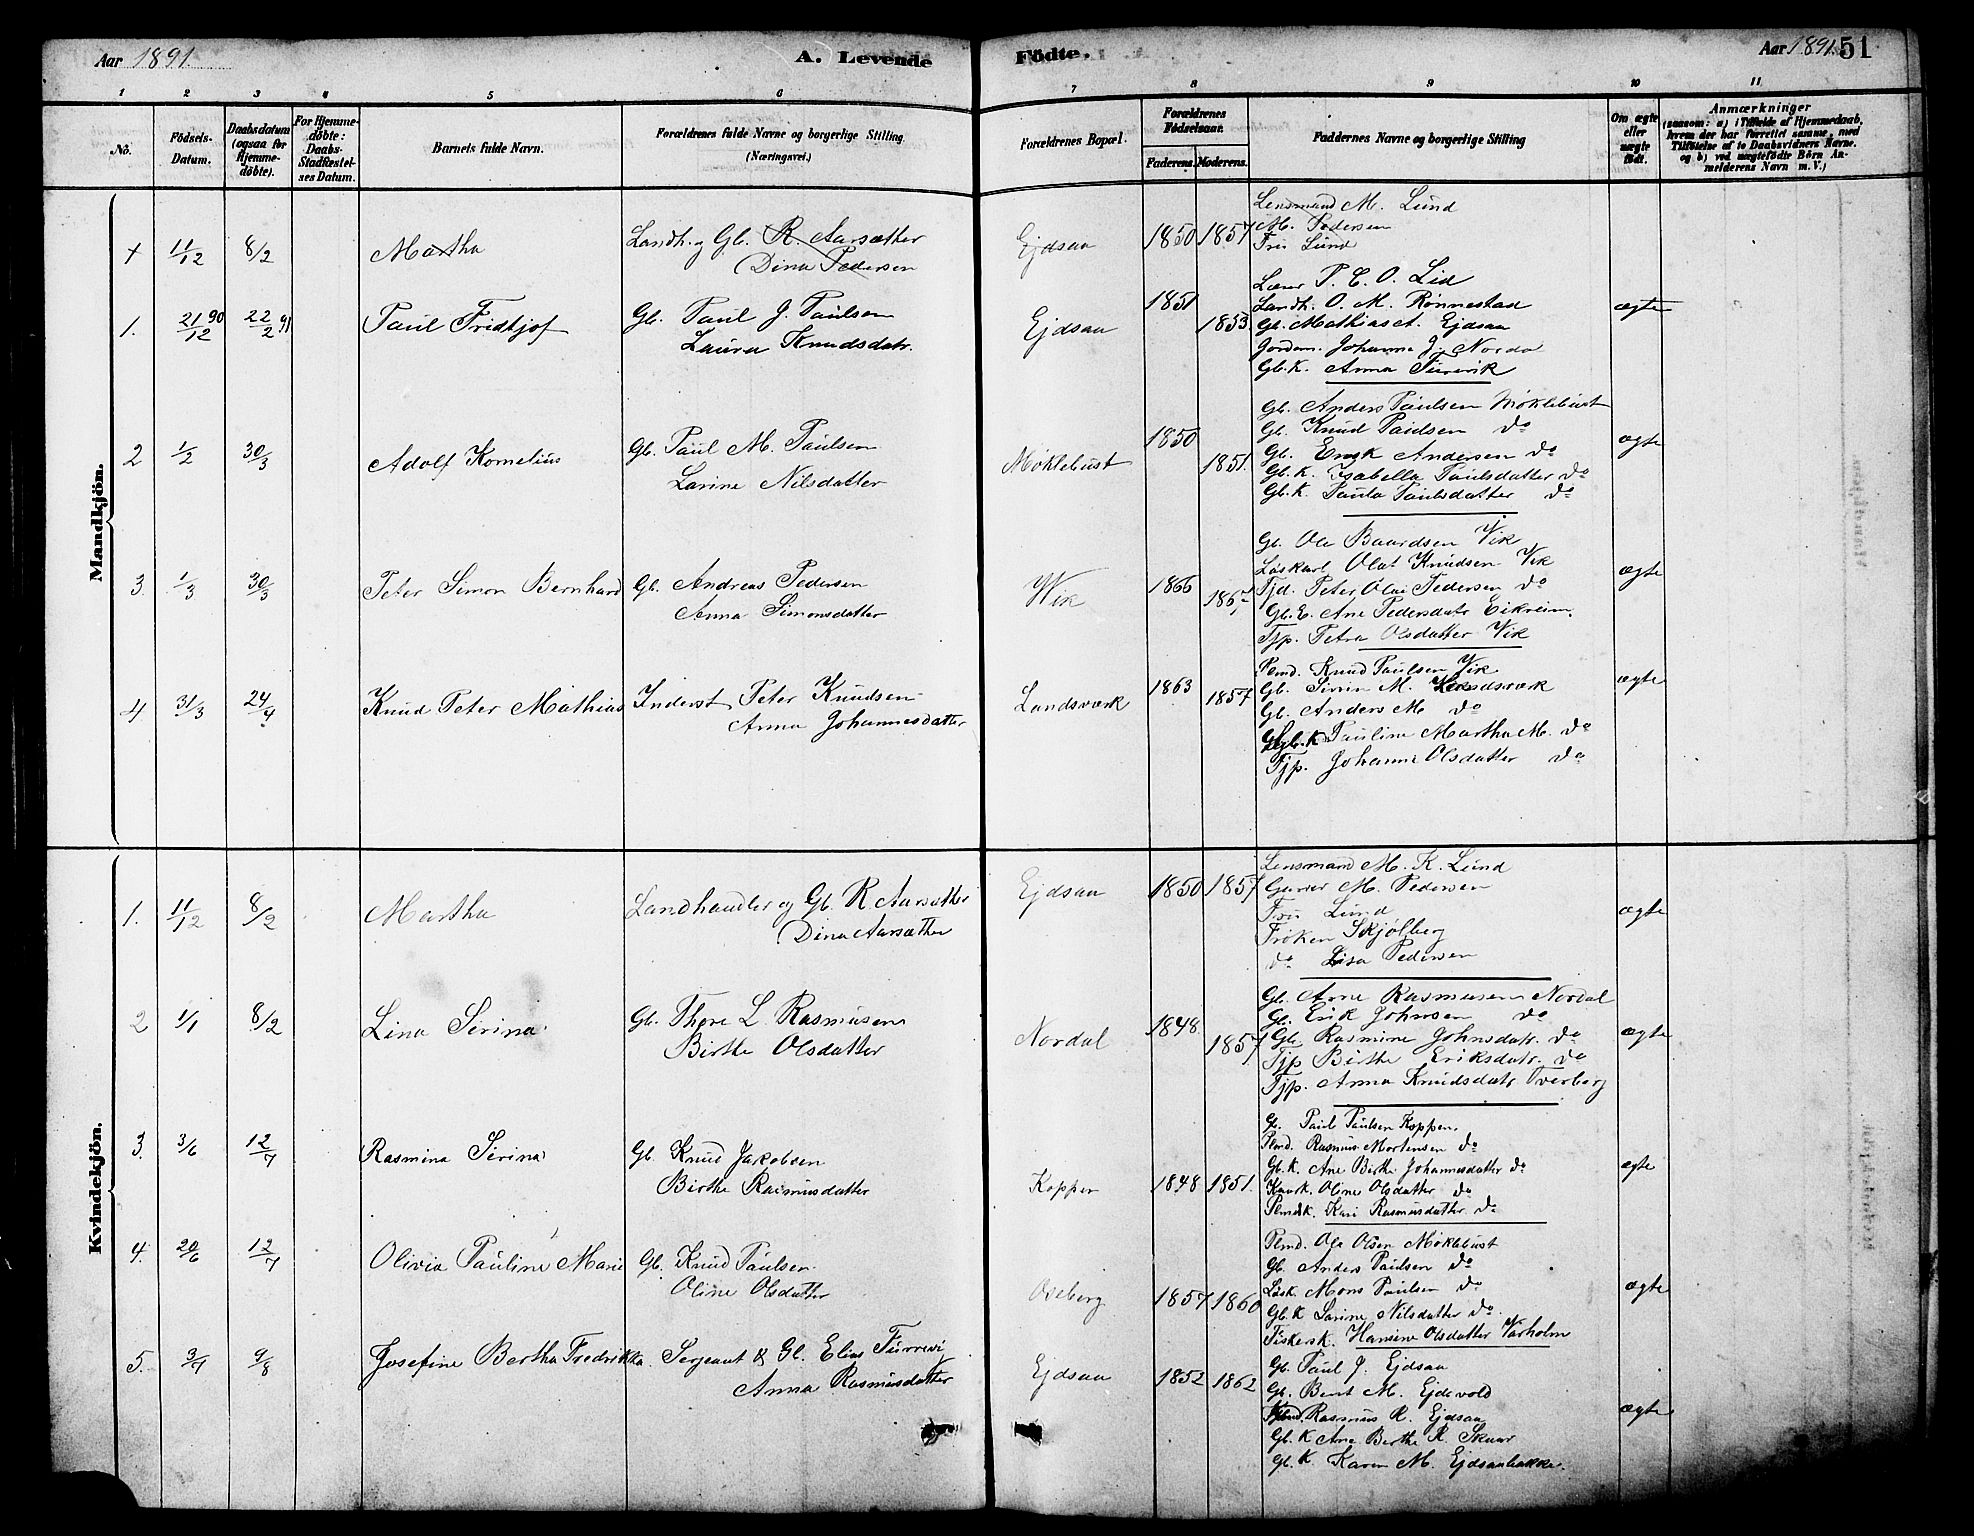 Aar 1891. A. Levende Födte. Aar 1891. 51
1 2 3 4 5 6 7 8 9 10 11
No.
Födsels-Datum.
Daabsdatum (ogsaa for Hjemme-döbte).
For Hjemme-döbte: Daabs-Stadfæstel-ses Datum.
Barnets fulde Navn.
Forældrenes fulde Navne og borgerlige Stilling. (Næringsvei.)
Forældrenes Bopæl.
Forældrenes Födselsaar.
Faderens. Moderens.
Faddernes Navne og borgerlige Stilling
Om ægte eller uægte födt.
Anmærkninger
(saasom: a) i Tilfælde af Hjemmedaab, hvem der har forrettet samme, med Tilföielse af to Daabsvidners Navne. og b) ved uægtefödte Börn An-melderens Navn m. V.)
Mandkjön.
+ 11/12 8/2 Martha Landh. og Gb. R. Aarsætter Ejdsaa 1850 1857 Lensmand M. Lund
Dina Pedersen M. Pedersen
Fru Lund
1. 21/12 90 22/2 91 Paul Fridtjof Gb. Paul J. Paulsen Ejdsaa 1851 1853. Lærer P. E. O. Lid ægte
Laura Knudsdatr. Landh. O. M. Rønnestad
Gb. Mathias A. Ejdsaa
Jordem. Johanne J. Nordal
Gb.K. Anna Furevik
2 1/2 30/3 Adolf Kornelius Gb. Paul M. Paulsen Møklebust 1850 1851. Gb. Anders Paulsen Møklebust ægte
Larine Nilsdatter Gb. Knud Paulsen do
Gb. Andersen do
Gb.K. Isabella Paulsdatter do
Gb.K. Paula Paulsdatter do
3. 1/3 30/3 Peter Simon Bernhard Gb. Andreas Pedersen Vik 1866 1867 Gb. Ole Baardsen Vik ægte
Anna Simonsdatter Løskarl Olat Knudsen Vik
Tjd. Peter Olai Pedersen do
Gb.E. Ane Pedersdatr Eikreim.
Tjp. Petra Olsdatter Vik
4 31/3 24/4 Knud Peter Mathias Inderst Peter Knudsen Landsværk 1863 1857 Plmd. Knud Paulsen Vik ægte
Anna Johannesdatter Gb. Simon M. Landsværk
Gb. Anders M. do
Gb.K Pauline Martha M. do
Tjp. Johanne Olsdatter do
Kvindekjön.
1. 11/12 8/2 Martha Landhandler og Gb. R. Aarsæther Ejdsaa 1850 1857 Lensmand M. K. Lund ægte
Dina Aarsæther M. Pedersen
Fru Lund
Frøken Skjølberg
do Lisa Pedersen
2 1/1 8/2 Lina Serina Gb. Thore L. Rasmusen Nordal 1848 1857 Gb. Arne Rasmusen Nordal ægte
Birthe Olsdatter Gb. Erik Johnsen do
Gb. Rasmine Johnsdatr. do
Tjp Birthe Eriksdatr. do
Tjp. Anna Knudsdatr Tverberg
3. 3/6 12/7 Rasmina Serina Gb. Knud Jakobsen Koppen 1848 1851. Gb. Paul Paulsen Koppen. ægte
Birthe Rasmusdatter Plmd. Rasmus Mortensen do
Gb.K. Ane Birthe Johannesdatter do
Oline Olsdatter do
Plmdsk. Kari Rasmusdatter do
4. 20/6 12/7 Olivia Pauline Marie Gb. Knud Paulsen Oseberg 1857 1860 Plmd. Ole Olsen Møklebust ægte
Oline Olsdatter Gb. Anders Paulsen do
Løsk. Mons Paulsen do
Gb.K Larine Nilsdatter do
Fiskersk. Hansine Olsdatter Varholm
5. 3/7 9/8 Josefine Bertha Fredrikka Serjeant & Gb. Elias Furrevi Ejdsaa 1852 1862 Gb. Paul J. Ejdsaa ægte
Anna Rasmusdatter Gb. Bent M. Ejdevold
Rasmus R. Ejdsaa
Gb.K Ane Berthe R. Skaar
Gb. K. Karen M. Ejdsaabakke.